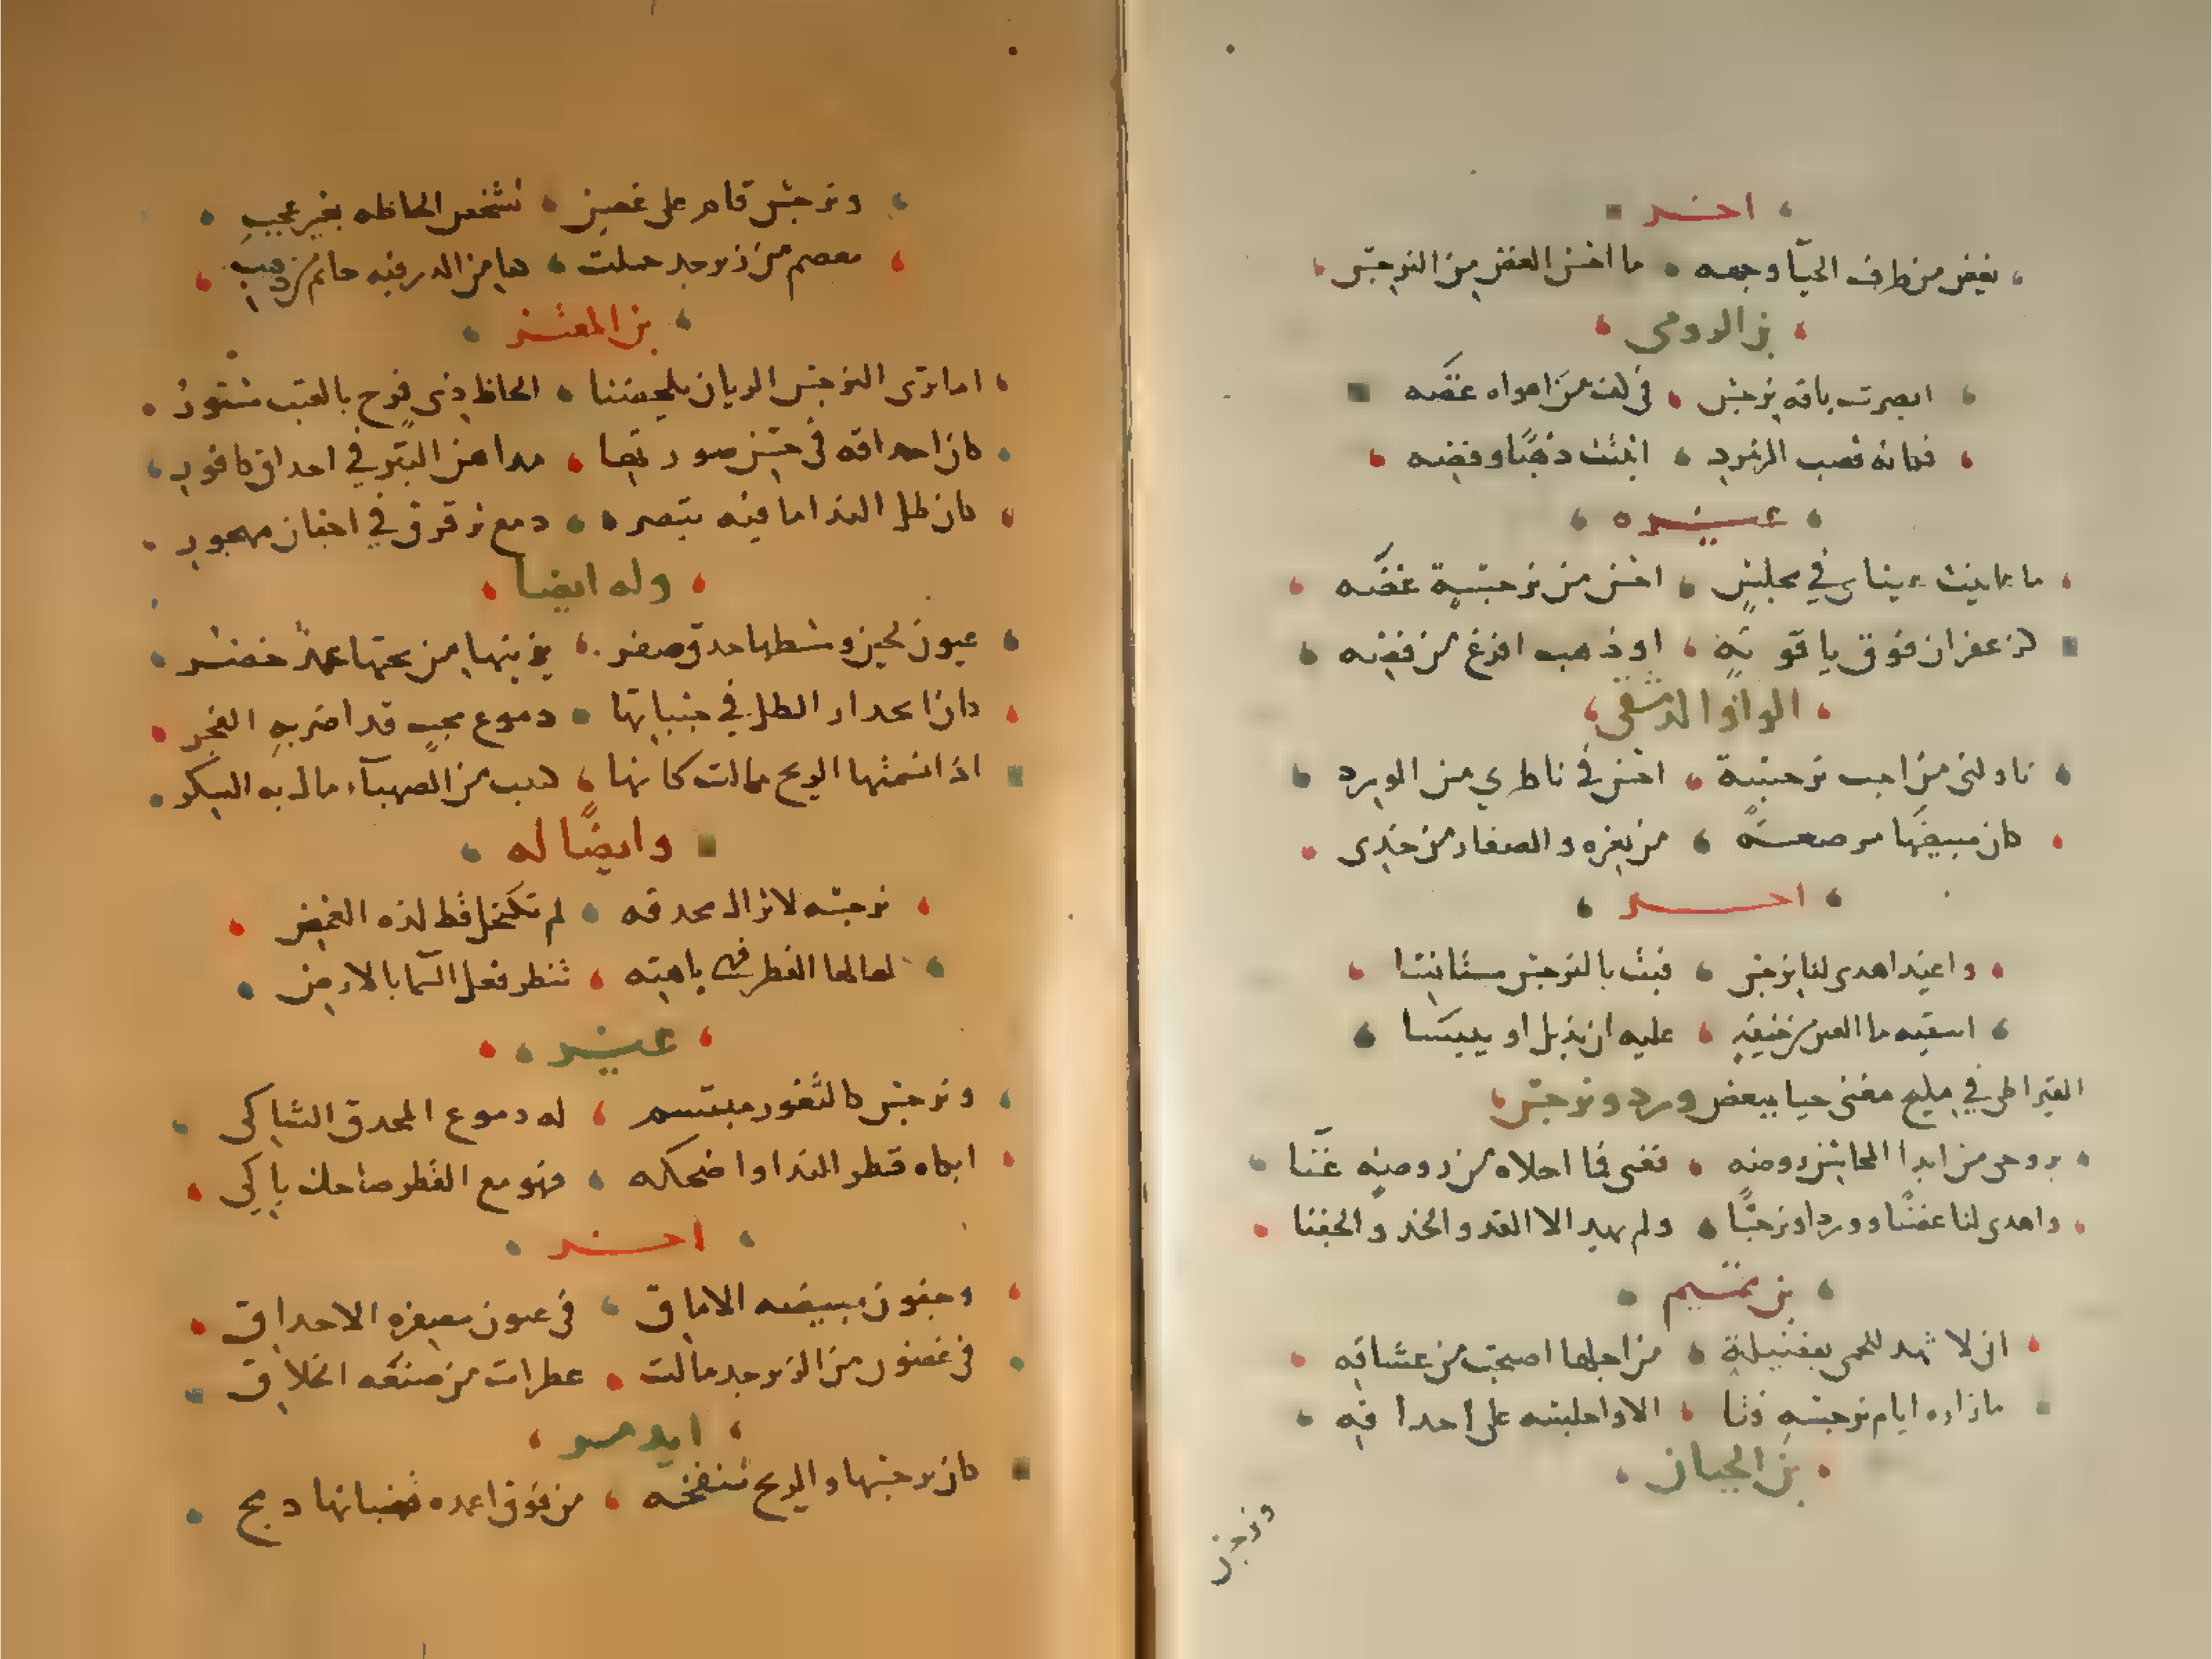 اخر
يغض من طرف الحيا وجهه ما احسن الغض من النرجس
بن الرومي
ابصرت باقه نرجس في كف من اهواه غضه
فكانه قضب الزمرد انبتت ذهبًا وفضه
غيره
ما عاينت عيناى في مجلس احسن من نرجسية غضه
من زعفران فوق ياقوتة او ذهب افرغ من فضه
الواوا الدمشقي
ناولني من احب نرجسة احسن في ناظري من الورد
كان مبيضها مرصعة من ثغره والصفار من خدى
اخر
واغيد اهدى لنا نرجس فبت بالنرجس مستانسا
اسقيه ما العين من خيفة عليه ان يذبل او ييبسا
القيراطي في مليح مغنى حيا ببعض ورد ونرجس
بروحى من ابدا المحاسن روضه تغنى فما احلاه من روضة غنا
واهدى لنا غصنًا ووردا ونرجسًا ولم يهد الا القد والخد والجفنا
بن تميم
انى لاشهد للحمى بفضيلة من اجلها اصبحت من عشاقه
مازاره ايام نرجسه فتا الا واجلسه على احداقه
بن الجنان
ونرجس
ونرجس قام على غصن تشخص الحاظه بغير عجب
معصم من زبرجد حملت هام من الدر فيه جام من ذهب
بن المعتز
اما ترى النرجس الريان يلحظنا الحاظ ذى فرح بالعتب مستور
كان احداقه في حسن صورتها مداهن التبر في احداق كافور
كان طل الندا ما فيه تبصره دمع ترقرق في اجفان مهجور
وله ايضا
عيون لجين وسطها حدق صفر يزينها من تحتها عمد خضر
كان انحدار الطل في جنباتها دموع محب قد اضر به الهجر
اذا نسمتها الريح مالت كانها دبيب من الصهباء مال به السكر
وايضًا له
نرجسه لا تزال محدقه لم تكتحل قط لذه الغمض
امالها القطر فهى باهته تنظر فعل السما بالارض
غيره
ونرجس كالثغور مبتسم له دموع المحدق الشاكى
ابكاه قطر الندا واضحكه فهو مع القطر ضاحك باكي
اخر
وجفون مبيضه الاماق في عيون مصفره الاحداق
في غصون من الزبرجد مالت عطرات من صنعه الخلاق
ايدمر
كان نرجسها والريح تنفخه من فوق اعمده قضبانها دمج